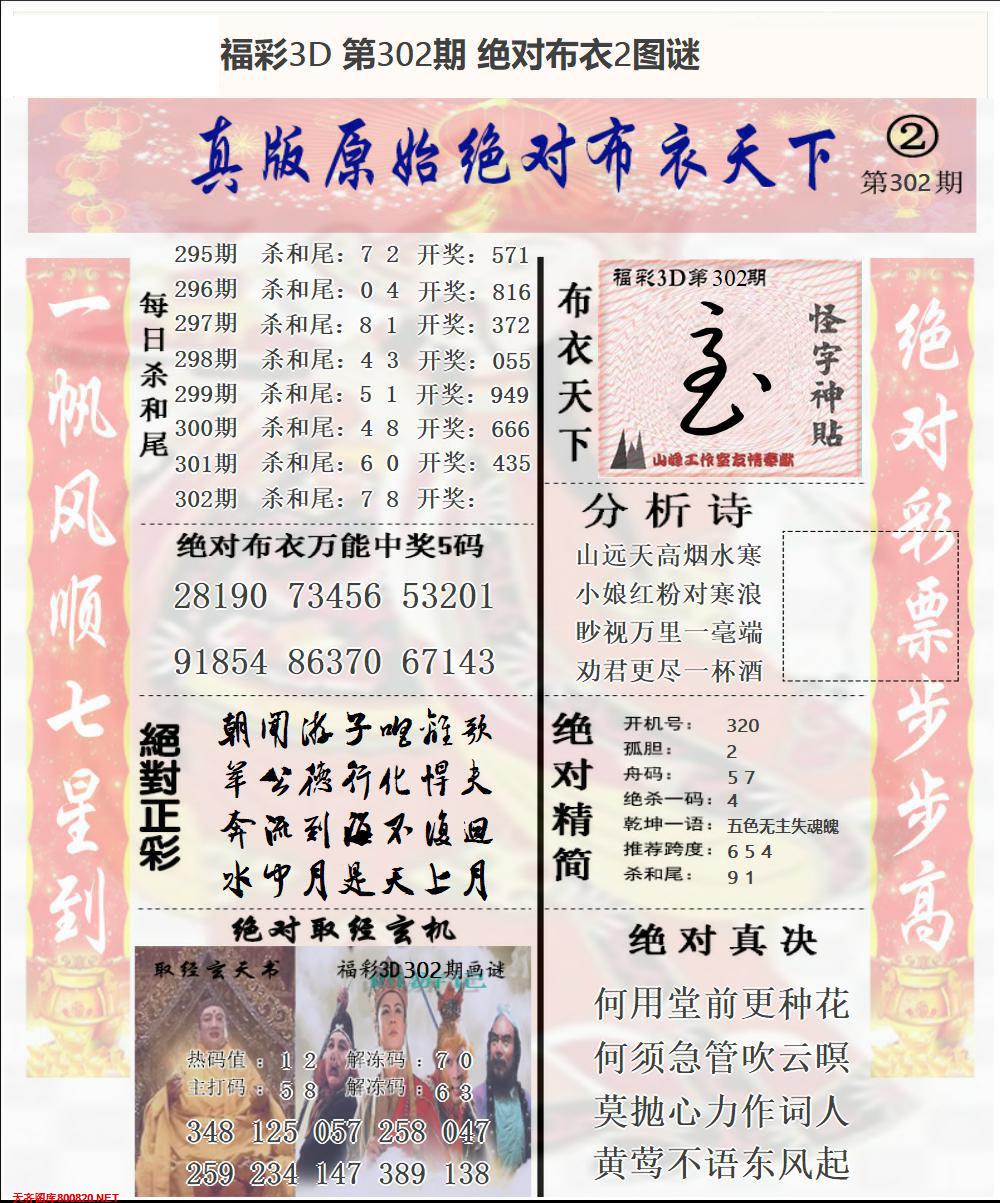 福彩3D 第302期 绝对布衣2图谜
真版原始绝对布衣天下
②
第302期
一帆风顺七星到
每日杀和尾
295期 杀和尾：7 2 开奖：571
296期 杀和尾：0 4 开奖：816
297期 杀和尾：8 1 开奖：372
298期 杀和尾：4 3 开奖：055
299期 杀和尾：5 1 开奖：949
300期 杀和尾：4 8 开奖：666
301期 杀和尾：6 0 开奖：435
302期 杀和尾：7 8 开奖：
绝对布衣万能中奖5码
28190 73456 53201
91854 86370 67143
絕對正彩
朝闻游子唱离歌
羊公德行化悍夫
奔流到海不復迴
水中月是天上月
绝对取经玄机
取经玄天书
福彩3D302期画谜
热码值：1 2 解冻码：7 0
主打码：5 8 解冻码：6 3
348 125 057 258 047
259 234 147 389 138
天齐图库800820.NET
布衣天下
福彩3D第302期
怪字神貼
山峰工作室友情奉献
分析诗
山远天高烟水寒
小娘红粉对寒浪
眇视万里一毫端
劝君更尽一杯酒
绝对精简
开机号：320
孤胆：2
舟码：5 7
绝杀一码：4
乾坤一语：五色无主失魂魄
推荐跨度：6 5 4
杀和尾：9 1
绝对真决
何用堂前更种花
何须急管吹云暝
莫抛心力作词人
黄莺不语东风起
绝对彩票步步高